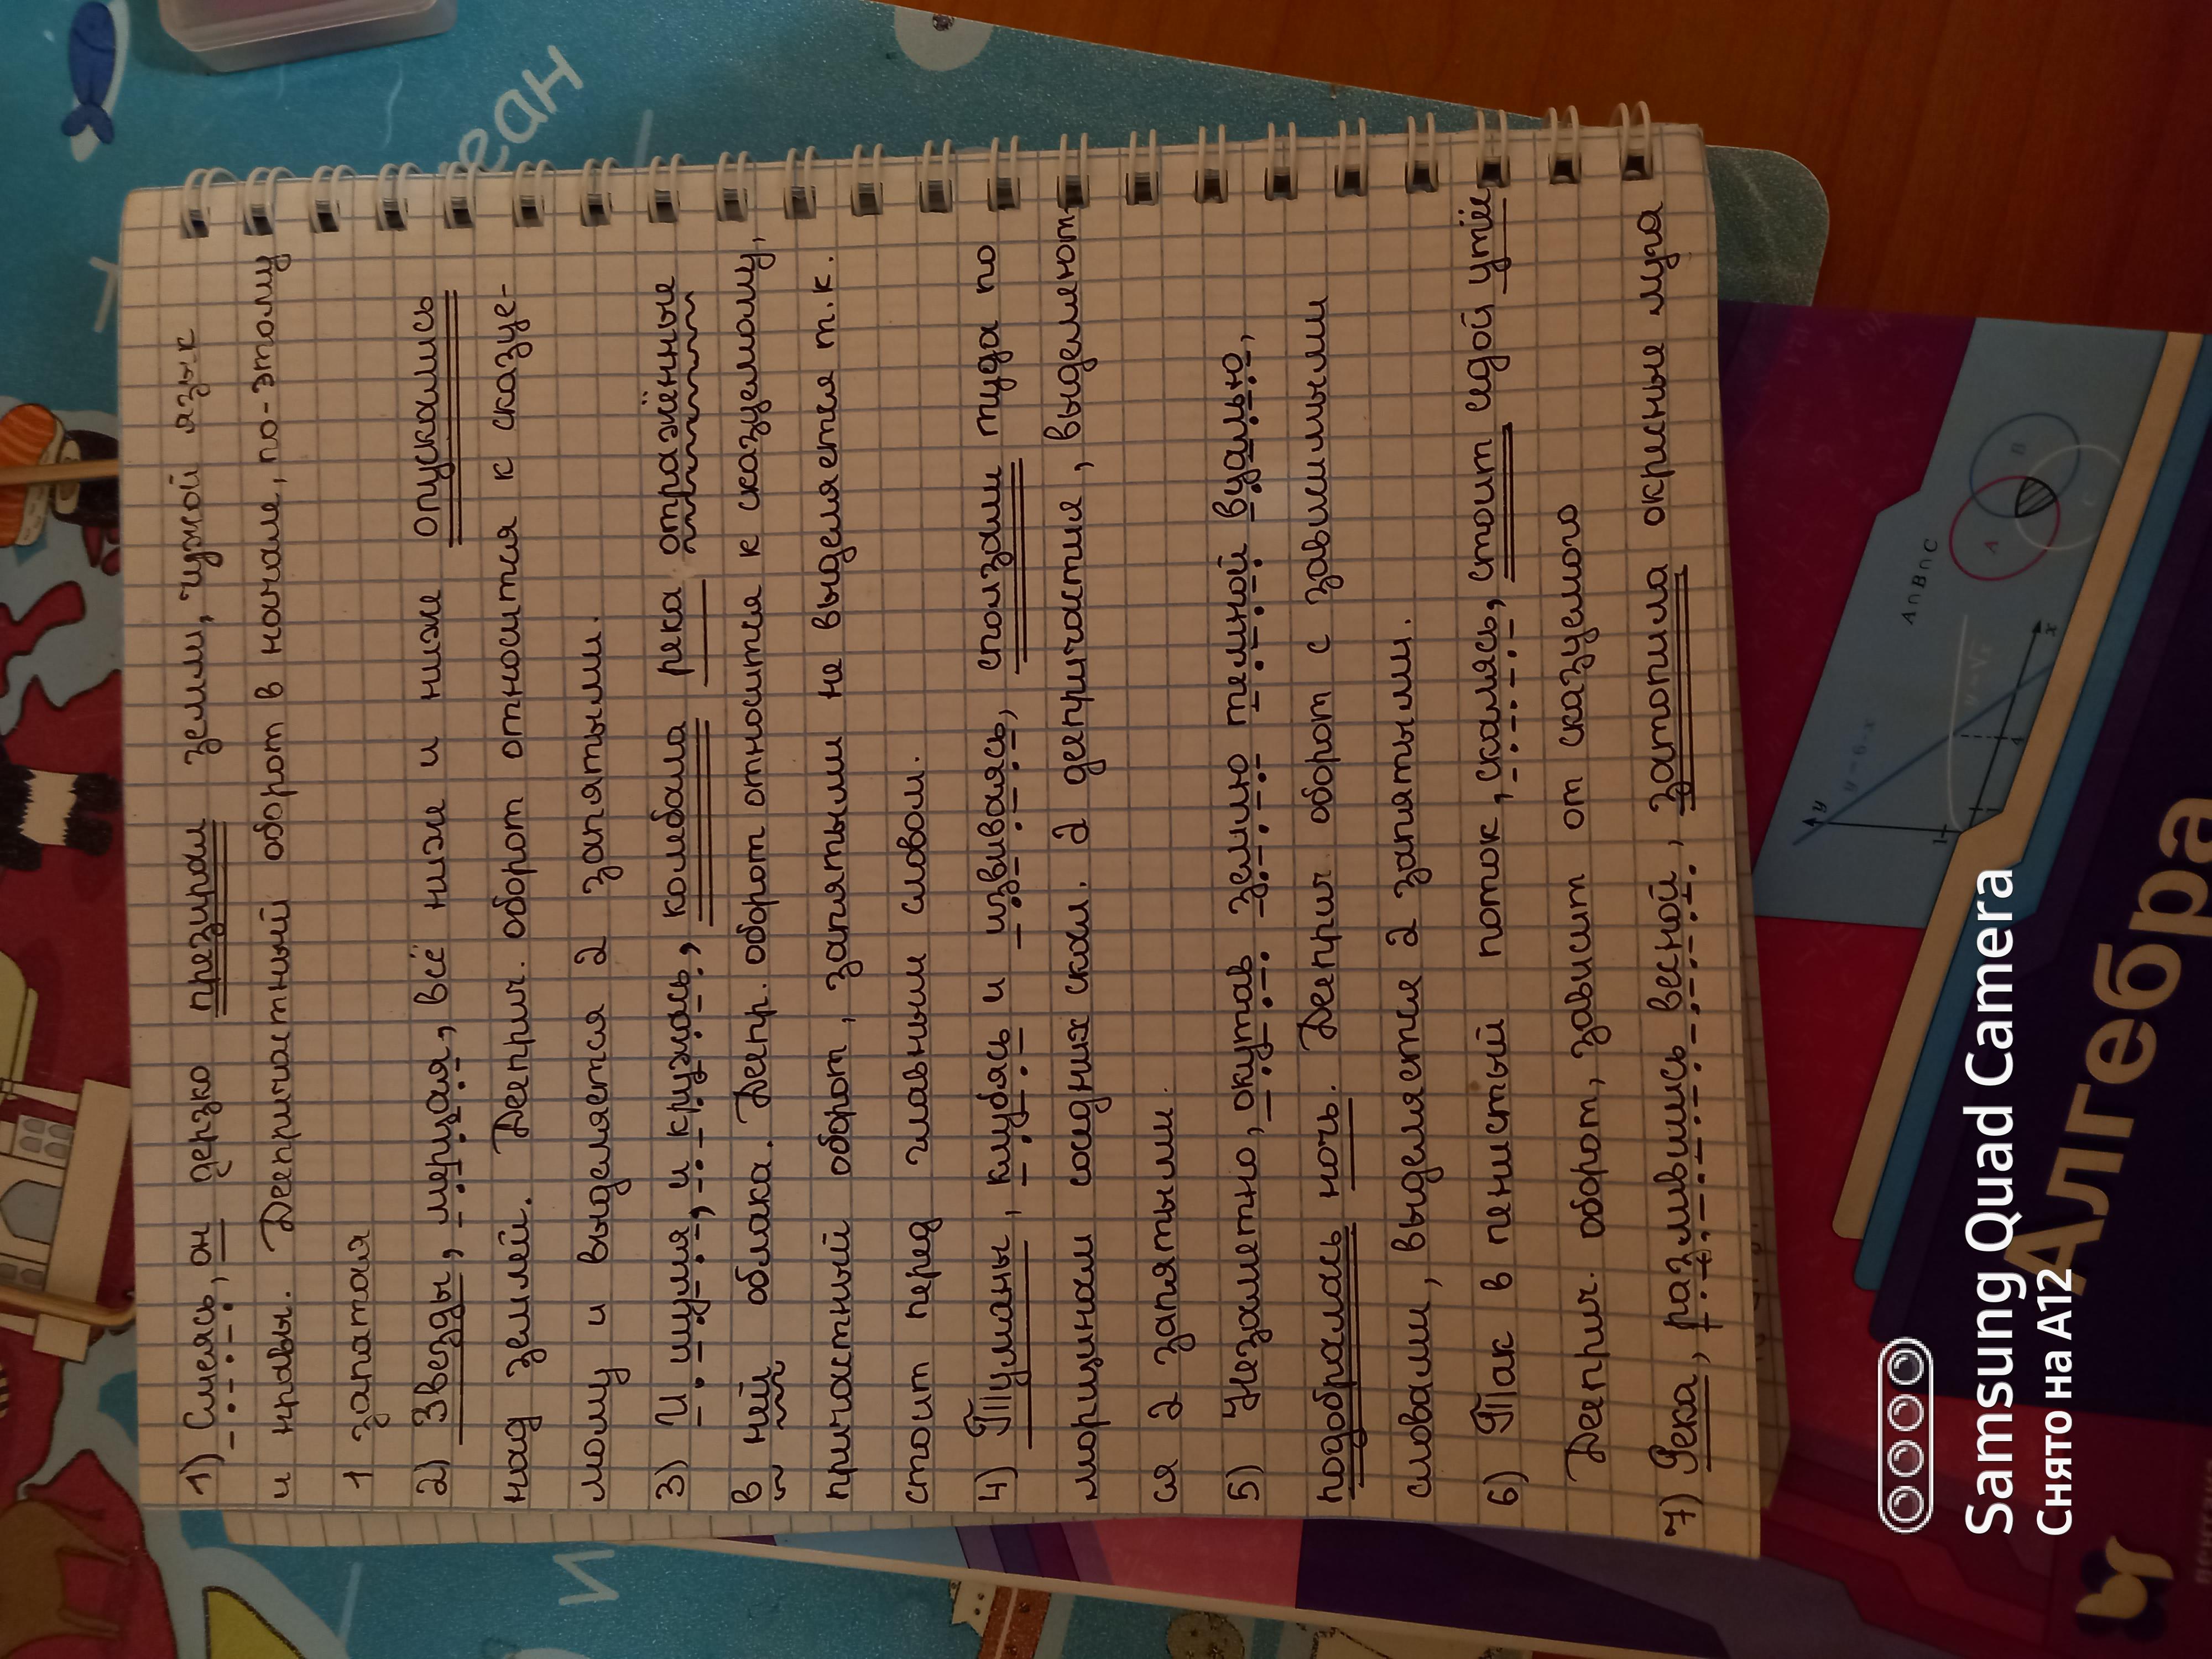 1) Смеясь, он дерзко презирал земли, чужой язык
и нравы. Деепричастный оборот в начале, по-этому
1 запятая
2) Звезды, мерцая, всё ниже и ниже опускались
над землей. Дееприч. оборот относится к сказуе-
мому и выделяется 2 запятыми.
3) И шумя, и кружась, колебала река отражённые
в ней облака. Деепр. оборот относится к сказуемому,
причастный оборот, запятыми не выделяется т.к.
стоит перед главным словом.
4) Туманы, клубясь и извиваясь, сползали туда по
морщинам соседних скал. 2 деепричастия, выделяют-
ся 2 запятыми.
5) Незаметно, окутав землю темной вуалью,
подобралась ночь. Дееприч. оборот с зависимыми
словами, выделяется 2 запятыми.
6) Так в пенистый поток, скалясь, стоит седой утёс
Дееприч. оборот, зависит от сказуемого
7) Река, разлившись весной, затопила окресные луга
еан
И
Алгебра
A∩B∩C
A
B
C
y
x
y=6-x
y=√x
1
4
Samsung Quad Camera
Снято на A12